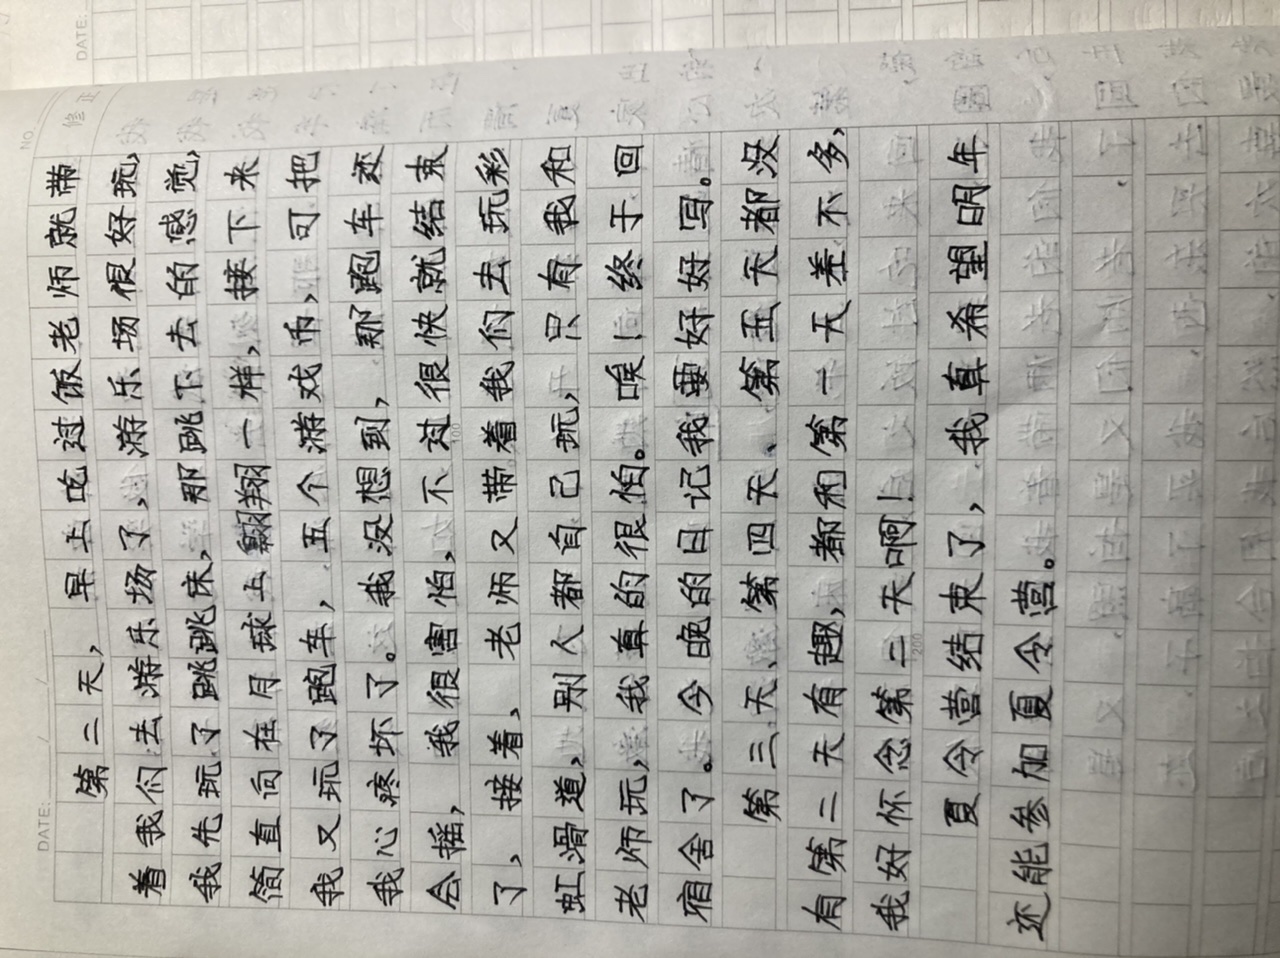 NO.
DATE:
DATE:
修正
第二天，早上吃过饭老师就带
着我们去游乐场了，游乐场很好玩，
我先玩了跳跳床，那跳下去的感觉，
简直向在月球上翱翔一样，接下来
我又玩了跑车，五个游戏币，可把
我心疼坏了。我没想到，那跑车还
会摇，我很害怕，不过很快就结束
了，接着，老师又带着我们去玩彩
虹滑道，别人都自己玩，只有我和
老师玩，我真的很怕。唉！终于回
宿舍了。今晚的日记我要好好写。
第三天、第四天、第五天都没
有第二天有趣，都和第一天差不多，
我好怀念第二天啊！
夏令营结束了，我真希望明年
还能参加夏令营。
100
200